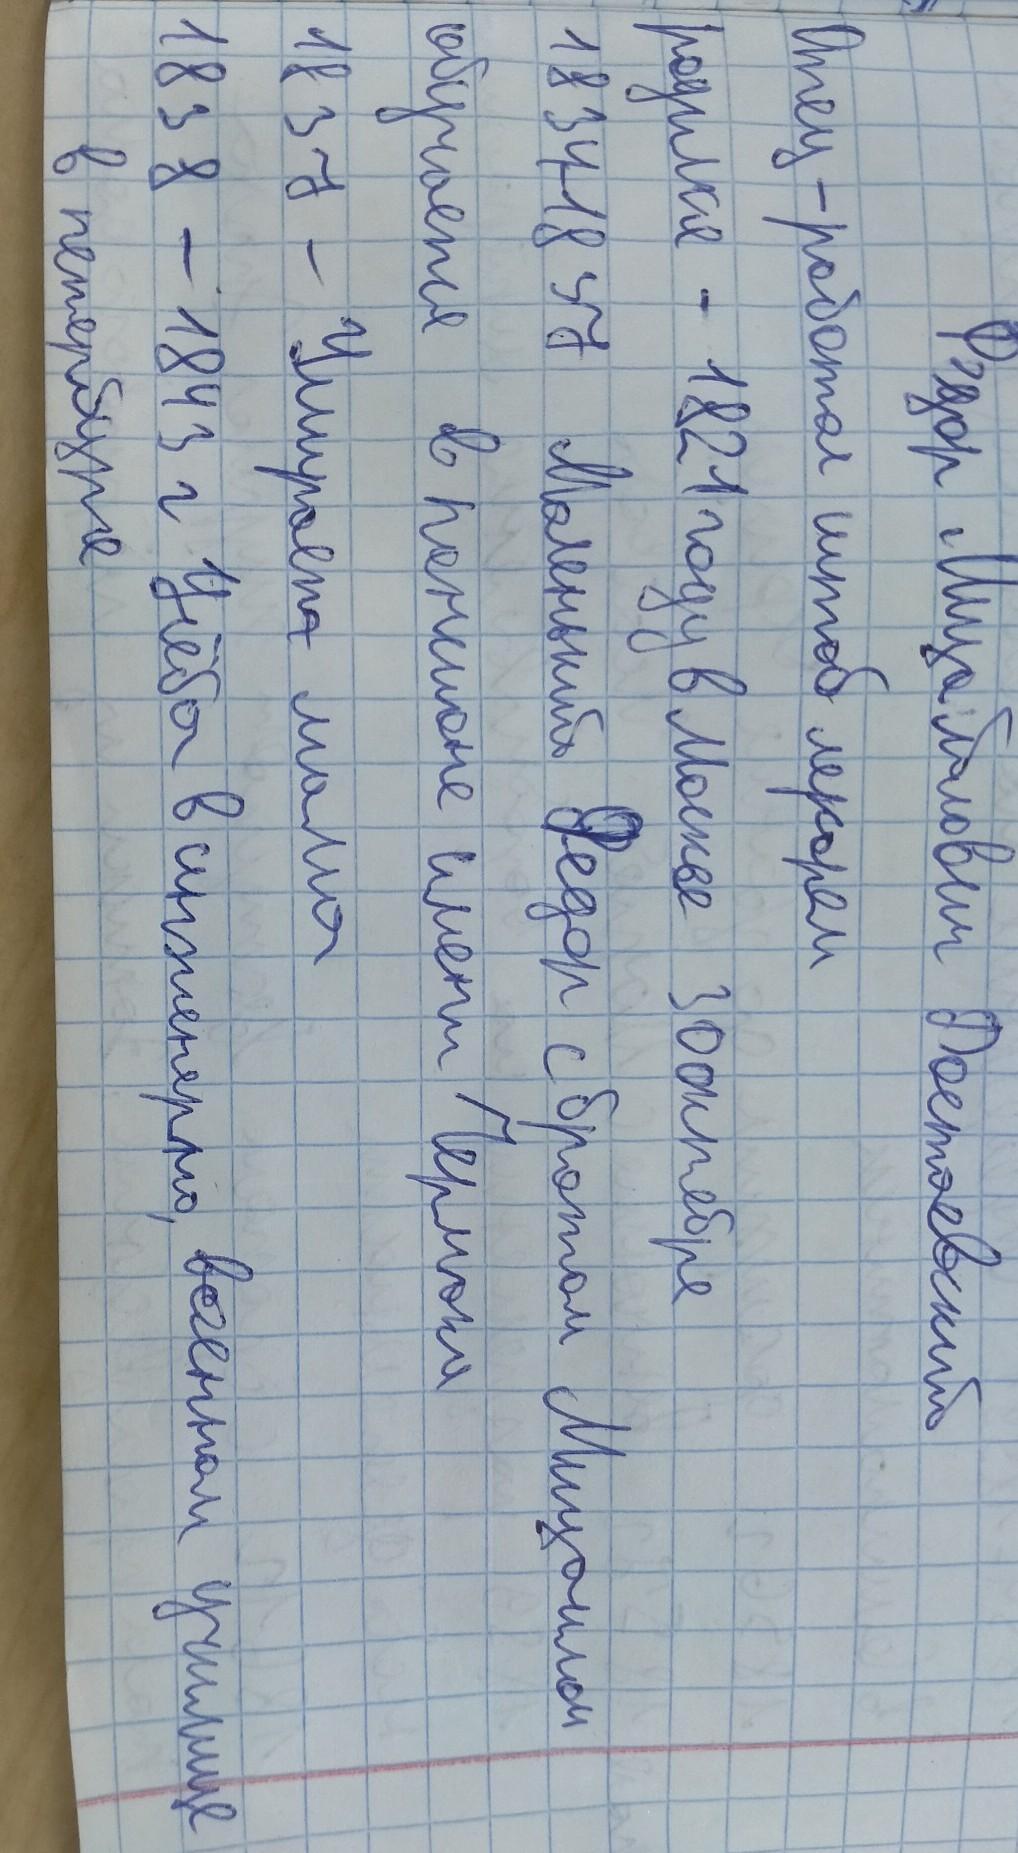 Фёдор Мицайлович Достоевский
Отец - работал штаб лекарем
родился - 1821 году в Москве 30 октебре
1834 1837 Маленький Федор с братом Мицаилом
обучается в пенсионе имени Чермока
1837 - Умирает мама
1838 - 1843 г Учёба в инженерно, военном училище
в петербурге